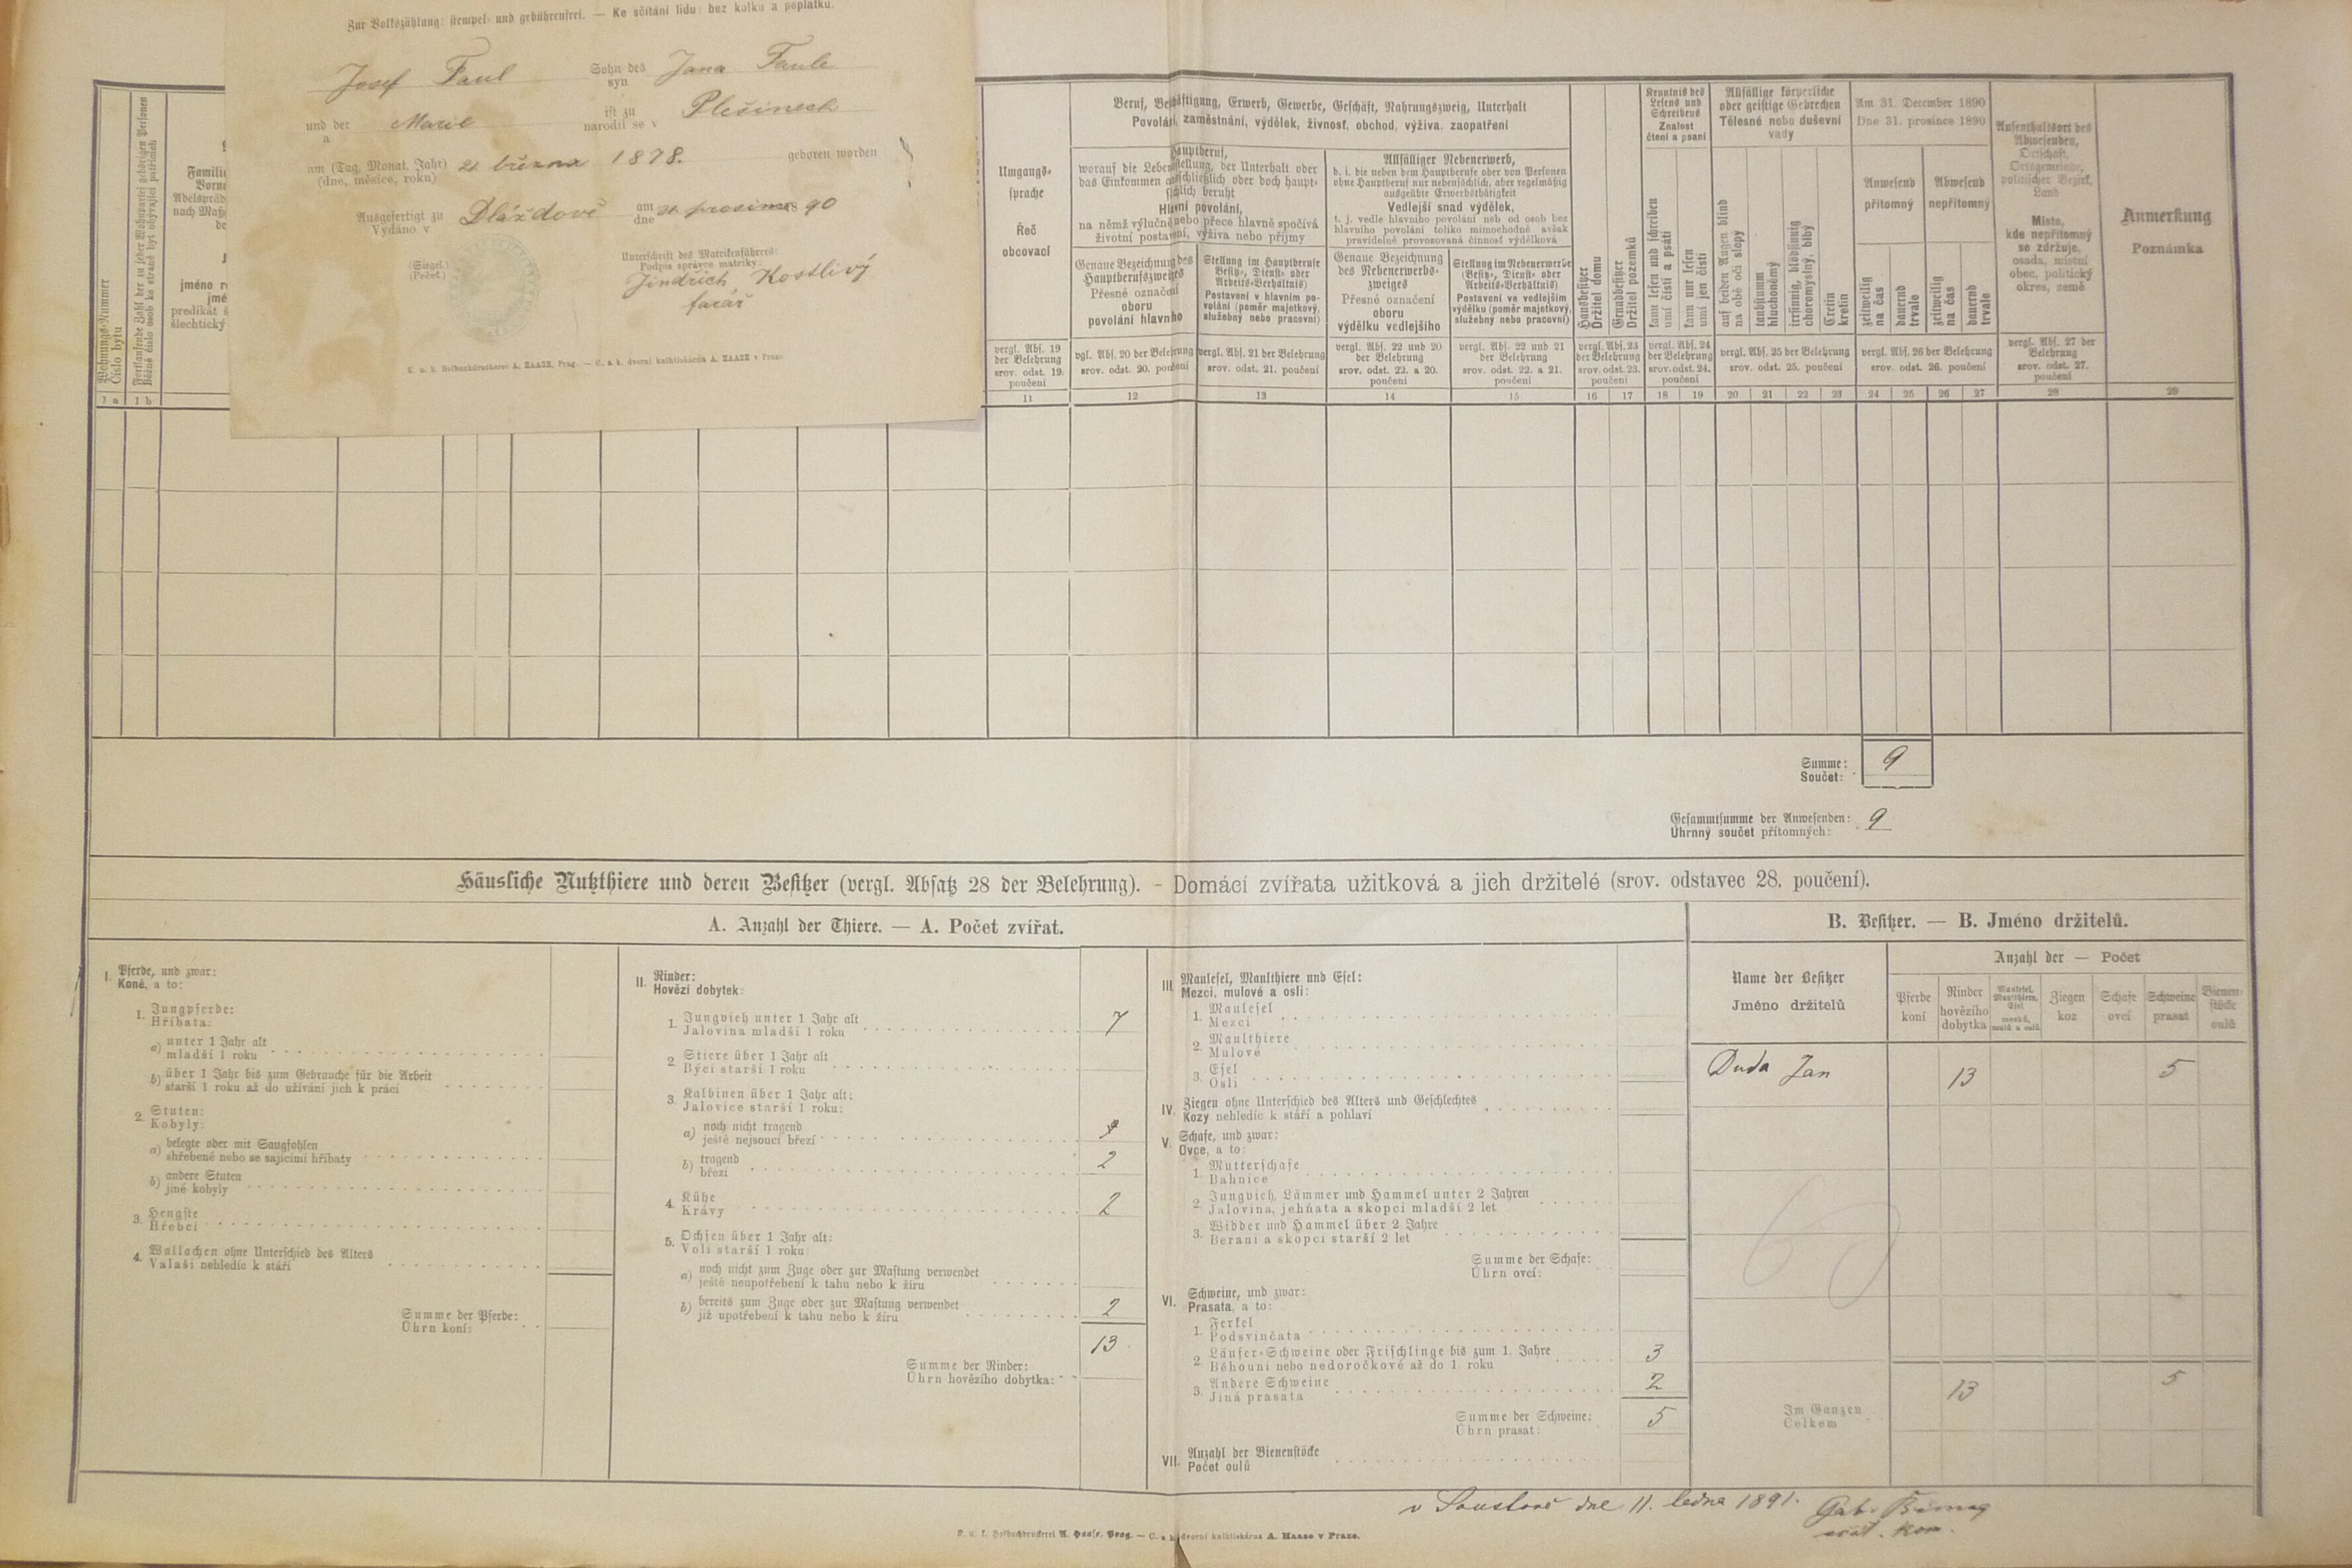 Zur Volkszählung: stempel- und gebührenfrei. — Ke sčítání lidu: bez kolku a poplatku.
Josef Faul Sohn des syn Jana Faule
und der a Marie ist zu narodil se v Plešinech
am (Tag, Monat, Jahr) (dne, měsíce, roku) 21 března 1878. geboren worden
Ausgefertigt zu Vydáno v Dláždově am dne 31 prosince 1890
(Siegel.) (Pečeť.)
Unterschrift des Matrikenführers:
Podpis správce matriky:
Jindřich Kostlivý
farář
K. u. k. Hofbuchdruckerei A. HAASE, Prag. — C. a k. dvorní knihtiskárna A. HAASE v Praze.
Wohnungs-Nummer
Číslo bytu
Fortlaufende Zahl der zu jeder Wohnpartei gehörigen Personen
1 a
1 b
jméno
predikát
šlechtický
Umgangs-
sprache
Řeč
obcovací
vergl. Abs. 19
der Belehrung
srov. odst. 19.
poučení
11
Beruf, Beschäftigung, Erwerb, Gewerbe, Geschäft, Nahrungszweig, Unterhalt
Povolání, zaměstnání, výdělek, živnosť, obchod, výživa, zaopatření
Hauptberuf,
worauf die Lebensstellung, der Unterhalt oder
das Einkommen ausschließlich oder doch haupt-
sächlich beruht
Hlavní povolání,
na němž výlučně nebo přece hlavně spočívá
životní postavení, výživa nebo příjmy
Allfälliger Nebenerwerb,
d. i. die neben dem Hauptberufe oder von Personen
ohne Hauptberuf nur nebensächlich, aber regelmäßig
ausgeübte Erwerbsthätigkeit
Vedlejší snad výdělek,
t. j. vedle hlavního povolání neb od osob bez
hlavního povolání toliko mimochodně avšak
pravidelně provozovaná činnosť výdělková
Genaue Bezeichnung des
Hauptberufszweiges
Přesné označení
oboru
povolání hlavního
vgl. Abs. 20 der Belehrung
srov. odst. 20. poučení
12
Stellung im Hauptberufe
(Besitz-, Dienst- oder
Arbeits-Verhältnis)
Postavení v hlavním po-
volání (poměr majetkový,
služebný nebo pracovní)
vergl. Abs. 21 der Belehrung
srov. odst. 21. poučení
13
Genaue Bezeichnung
des Nebenerwerbs-
zweiges
Přesné označení
oboru
výdělku vedlejšího
vergl. Abs. 22 und 20
der Belehrung
srov. odst. 22. a 20.
poučení
14
Stellung im Nebenerwerbe
(Besitz-, Dienst- oder
Arbeits-Verhältnis)
Postavení ve vedlejším
výdělku (poměr majetkový,
služebný nebo pracovní)
vergl. Abs. 22 und 21
der Belehrung
srov. odst. 22 a 21.
poučení
15
Hausbesitzer
Držitel domu
Grundbesitzer
Držitel pozemků
vergl. Abs. 23
der Belehrung
srov. odst. 23.
poučení
16 17
Kenntnis des
Lesens und
Schreibens
Znalost
čtení a psaní
kann lesen und schreiben
umí čísti a psáti
kann nur lesen
umí jen čísti
vergl. Abs. 24
der Belehrung
srov. odst. 24.
poučení
18 19
Allfällige körperliche
oder geistige Gebrechen
Tělesné nebo duševní
vady
auf beiden Augen blind
na obě oči slepý
taubstumm
hluchoněmý
irrsinnig, blödsinnig
choromyslný, blbý
Cretin
kretin
vergl. Abs. 25 der Belehrung
srov. odst. 25. poučení
20 21 22 23
Am 31. December 1890
Dne 31. prosince 1890
Anwesend
přítomný
Abwesend
nepřítomný
zeitweilig
na čas
dauernd
trvale
zeitweilig
na čas
dauernd
trvale
vergl. Abs. 26 der Belehrung
srov. odst. 26. poučení
24 25 26 27
Aufenthaltsort des
Abwesenden,
Ortschaft,
Ortsgemeinde,
politischer Bezirk,
Land
Místo,
kde nepřítomný
se zdržuje,
osada, místní
obec, politický
okres, země
vergl. Abs. 27 der
Belehrung
srov. odst. 27.
poučení
28
Anmerkung
Poznámka
29
Summe:
Součet: 9
Gesammtsumme der Anwesenden:
Úhrnný součet přítomných: 9
Häusliche Nutzthiere und deren Besitzer (vergl. Absatz 28 der Belehrung). - Domácí zvířata užitková a jich držitelé (srov. odstavec 28. poučení).
A. Anzahl der Thiere. — A. Počet zvířat.
I. Pferde, und zwar:
Koně, a to:
1. Jungpferde:
Hříbata:
a) unter 1 Jahr alt
mladší 1 roku
b) über 1 Jahr bis zum Gebrauche für die Arbeit
starší 1 roku až do užívání jich k práci
2. Stuten:
Kobyly:
a) belegte oder mit Saugfohlen
shřebené nebo se sajícími hříbaty
b) andere Stuten
jiné kobyly
3. Hengste
Hřebci
4. Wallachen ohne Unterschied des Alters
Valaši nehledíc k stáří
Summe der Pferde:
Úhrn koní:
II. Rinder:
Hovězí dobytek:
1. Jungvieh unter 1 Jahr alt
Jalovina mladší 1 roku 7
2. Stiere über 1 Jahr alt
Býci starší 1 roku
3. Kalbinen über 1 Jahr alt:
Jalovice starší 1 roku:
a) noch nicht tragend
ještě nejsoucí březí
b) tragend
březí 2
4. Kühe
Krávy 2
5. Ochsen über 1 Jahr alt:
Voli starší 1 roku:
a) noch nicht zum Zuge oder zur Mastung verwendet
ještě neupotřebení k tahu nebo k žíru
b) bereits zum Zuge oder zur Mastung verwendet
již upotřebení k tahu nebo k žíru 2
13
Summe der Rinder:
Úhrn hovězího dobytka:
III. Maulesel, Maulthiere und Esel:
Mezci, mulové a osli:
1. Maulesel
Mezci
2. Maulthiere
Mulové
3. Esel
Osli
IV. Ziegen ohne Unterschied des Alters und Geschlechtes
Kozy nehledíc k stáří a pohlaví
V. Schafe, und zwar:
Ovce, a to:
1. Mutterschafe
Bahnice
2. Jungvieh, Lämmer und Hammel unter 2 Jahren
Jalovina, jehňata a skopci mladší 2 let
3. Widder und Hammel über 2 Jahre
Berani a skopci starší 2 let
Summe der Schafe:
Úhrn ovcí:
VI. Schweine, und zwar:
Prasata, a to:
1. Ferkel
Podsvinčata
2. Läufer-Schweine oder Frischlinge bis zum 1. Jahre
Běhouni nebo nedoročkové až do 1. roku 3
3. Andere Schweine
Jiná prasata 2
Summe der Schweine:
Úhrn prasat: 5
VII. Anzahl der Bienenstöcke
Počet oulů
B. Besitzer. — B. Jméno držitelů.
Name der Besitzer
Jméno držitelů
Anzahl der — Počet
Pferde
koní
Rinder
hovězího
dobytka
Maulesel,
Maulthiere,
Esel
mezků,
mulů a oslů
Ziegen
koz
Schafe
ovcí
Schweine
prasat
Bienen-
stöcke
oulů
Duda Jan 13 5
Im Ganzen
Celkem 13 5
v Soustově dne 11. ledna 1891.
K. u. k. Hofbuchdruckerei A. Haase, Prag. — C. a k. dvorní knihtiskárna A. Haase v Praze.